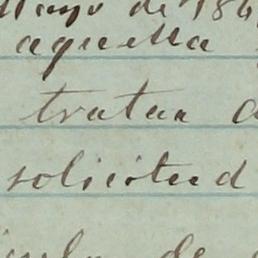 Mayo de 184
aquella
tratar a
solicitud
de